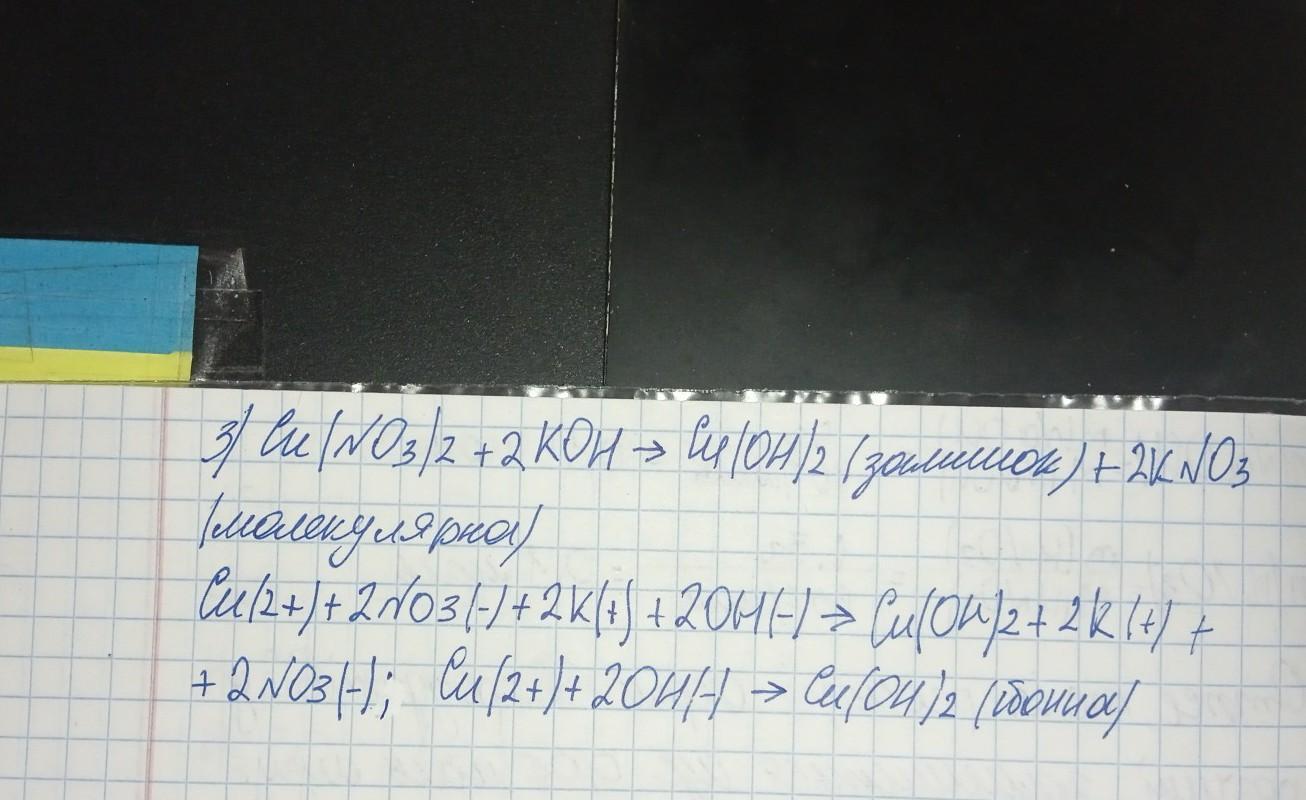 3) Cu(NO3)2 + 2KOH → Cu(OH)2 (залишок) + 2KNO3
(молекулярна)
Cu(2+) + 2NO3(-) + 2K(+) + 2OH(-) → Cu(OH)2 + 2K(+) +
+ 2NO3(-); Cu(2+) + 2OH(-) → Cu(OH)2 (йонна)